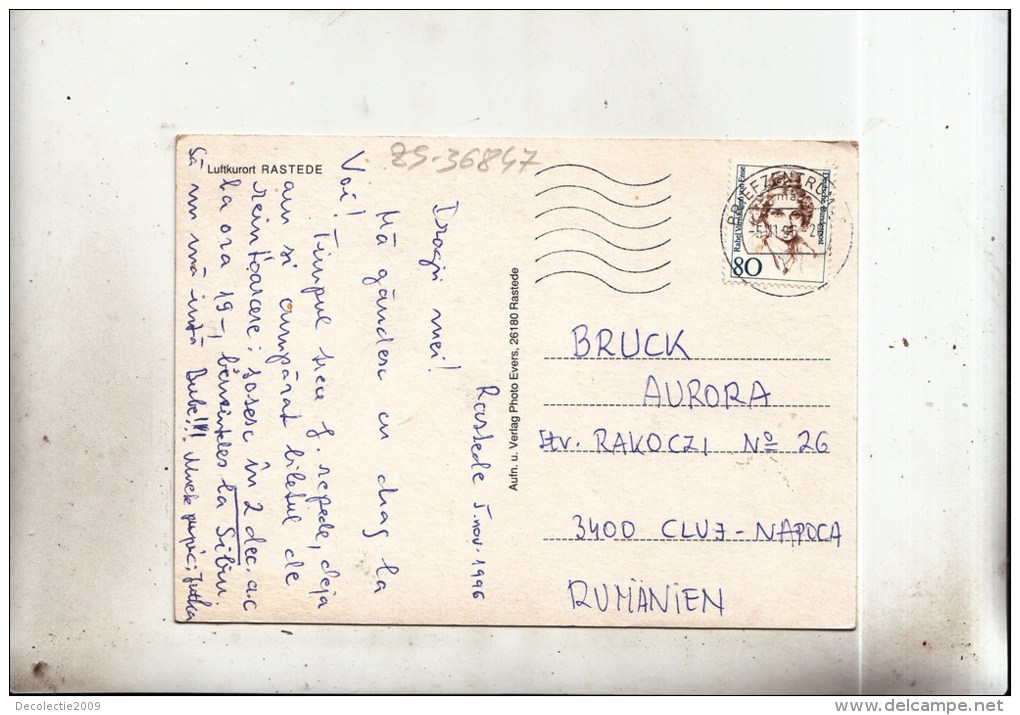 Luftkurort RASTEDE
ZS-36847
Rastede 5 nov. 1996
Dragii mei!
Mă gândesc cu drag la
Voi! Timpul trece f. repede, deja
am si cumpărat biletul de
reîntoarcere; sosesc în 2 dec. a.c
la ora 19-, bineînteles la Sibiu.
Să nu mă uită Dube!!!! Multe pupici, Jutka
Aufn. u. Verlag Photo Evers, 26180 Rastede
BRIEFZENTRUM
Deutsche Bundespost
Rahel Varnhagen von Ense
80
BRUCK
AURORA
Str. RAKOCZI Nº 26
3400 CLUJ-NAPOCA
RUMÄNIEN
Decolectie2009
www.delcampe.net